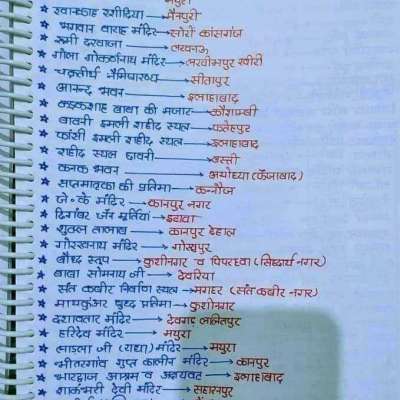 मथुरा
★ खानकाह रशीदिया → मैनपुरी
★ भगवान वाराह मंदिर → सोरों कासगंज
★ रूमी दरवाजा → लखनऊ
★ गोला गोकर्णनाथ मंदिर → लखीमपुर खीरी
★ चक्रतीर्थ नैमिषारण्य → सीतापुर
★ आनन्द भवन → इलाहाबाद
★ कड़कशाह बाबा की मजार → कौशाम्बी
★ बावनी इमली शहीद स्थल → फतेहपुर
★ फांसी इमली शहीद स्थल → इलाहाबाद
★ शहीद स्थल छावनी → बस्ती
★ कनक भवन → अयोध्या (फैजाबाद)
★ सप्तमातृका की प्रतिमा → कन्नौज
★ जे० के मंदिर → कानपुर नगर
★ दिगांबर जैन मूर्तियां → इटावा
★ शुक्ल तालाब → कानपुर देहात
★ गोरखनाथ मंदिर → गोरखपुर
★ बौध्द स्तूप → कुशीनगर व पिपरहवा (सिध्दार्थ नगर)
★ बाबा सोमनाथ जी → देवरिया
★ संत कबीर निर्वाण स्थल → मगहर (संत कबीर नगर)
★ माथकुंअर बुध्द प्रतिमा → कुशीनगर
★ दशावतार मंदिर → देवगढ़ ललितपुर
★ हरिदेव मंदिर → मथुरा
★ लाडला जी (राधा) मंदिर → मथुरा
★ भीतरगांव गुप्त कालीन मंदिर → कानपुर
★ भारद्वाज आश्रम व अक्षयवट → इलाहाबाद
★ शाकंभरी देवी मंदिर → सहारनपुर